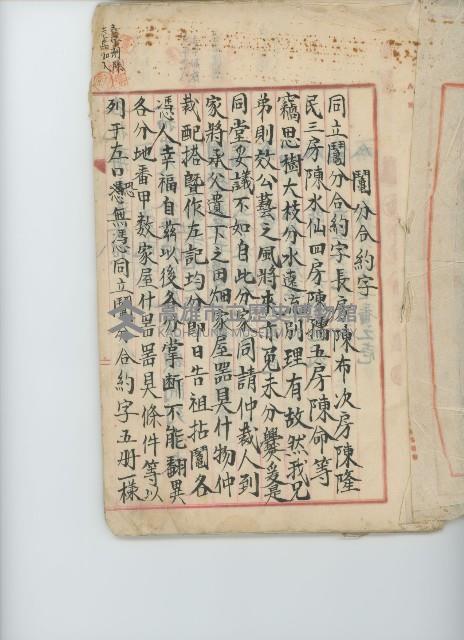 鬮分合約字
同立鬮分合約字長房陳布次房陳隆
民三房陳水仙四房陳孺五房陳命等
竊思樹大枝分水遠流別理有故然我兄
弟則效公藝之風將來亦冤未分爨爰是
同堂妥議不如自此分家同請仲裁人到
家將承父遺下之田畑家屋器具什物仲
裁配搭暨作左記均分即日告祖拈鬮各
憑人幸福自茲以後各分掌斷不能翻異
各分地番甲數家屋什器器具條件等以
列于左口恐無憑同立鬮分合約字五册一樣
高雄市立歷史博物館